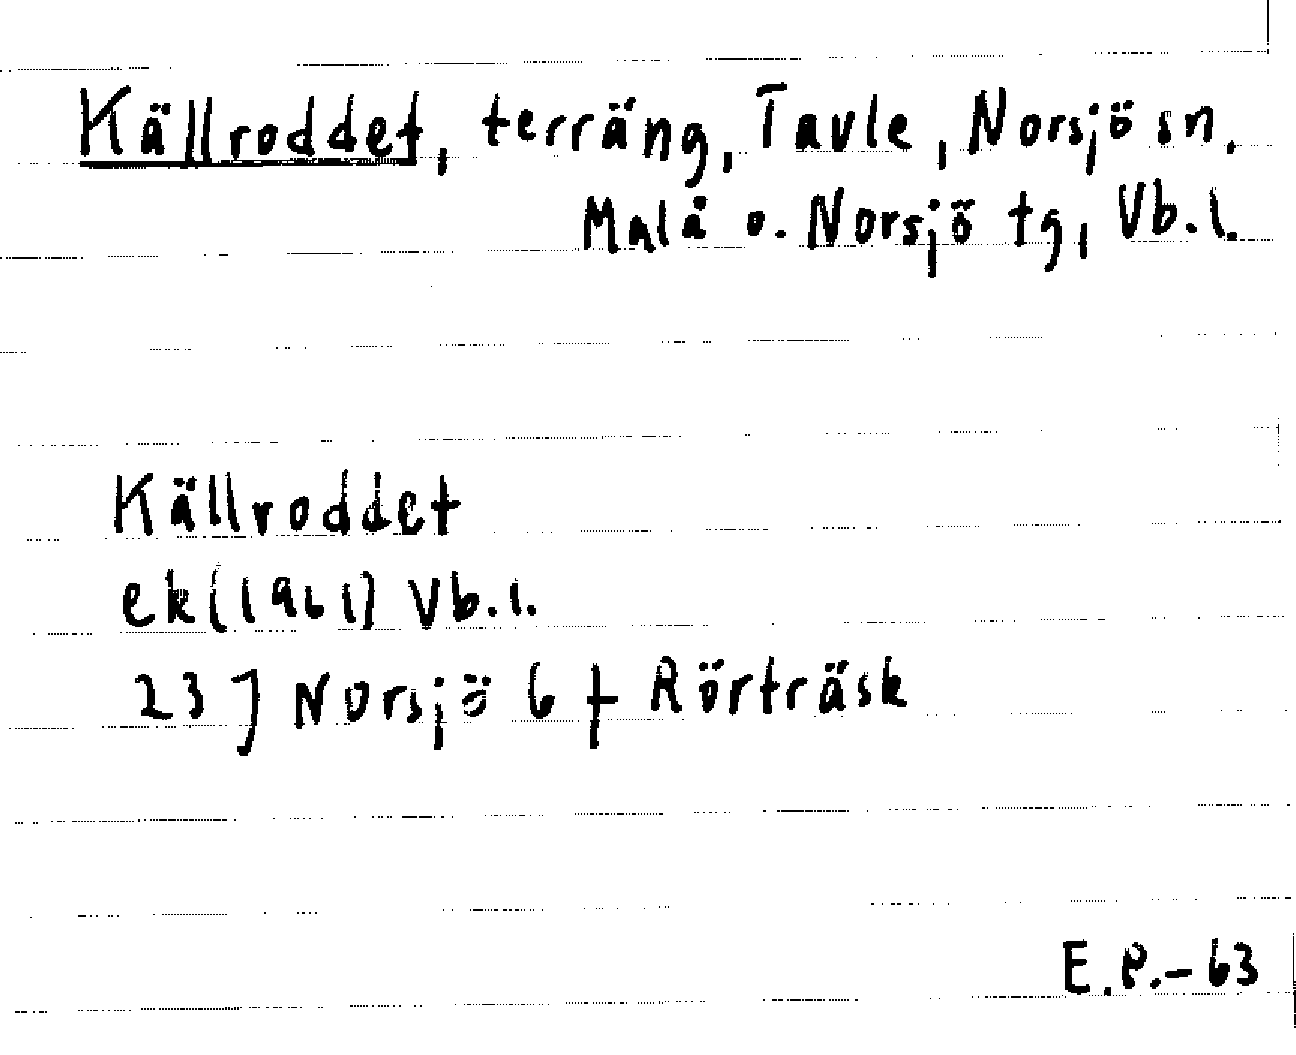 Källroddet, terräng, Tavle, Norsjö sn,
Malå o. Norsjö tg, Vb.l.
Källroddet
ek (1961) Vb.l.
23 J Norsjö 6 f Rörträsk
E.P.-63